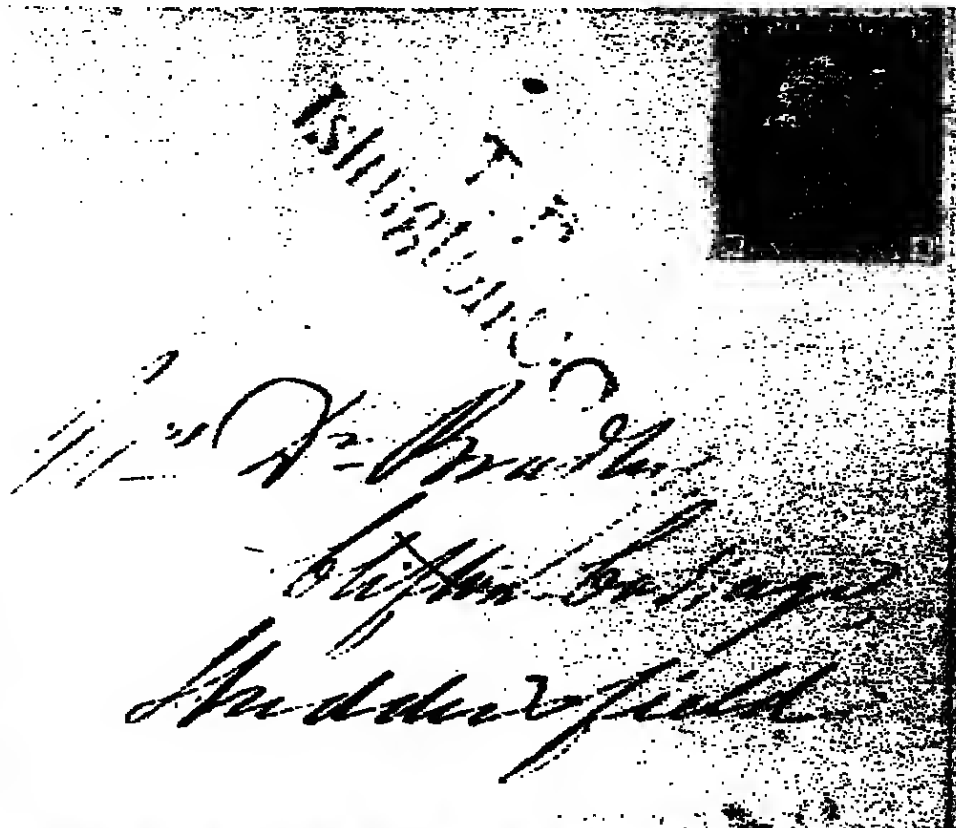 T.P
Islington.C.O
Mrs Dr
Clifton Cottage
Huddersfield